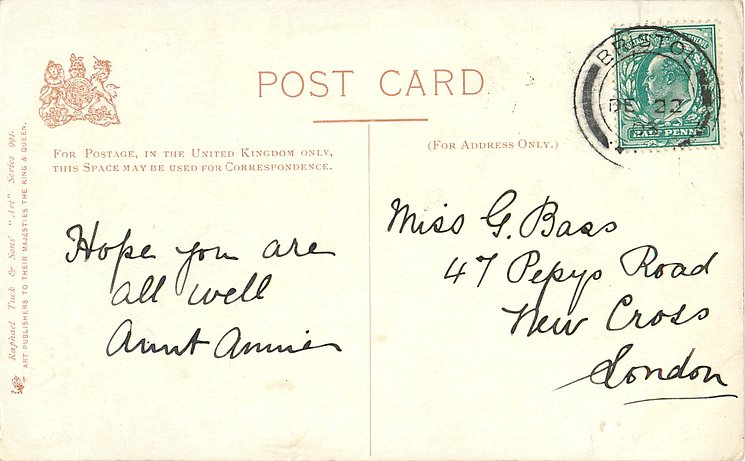 POST CARD
FOR POSTAGE, IN THE UNITED KINGDOM ONLY,
THIS SPACE MAY BE USED FOR CORRESPONDENCE.
(FOR ADDRESS ONLY.)
BRISTOL
DE 22
HALF PENNY
Hope you are
all well
Aunt Annie
Miss G. Bass
47 Pepys Road
New Cross
London
Raphael Tuck & Sons' "Art" Series 991.
ART PUBLISHERS TO THEIR MAJESTIES THE KING & QUEEN.